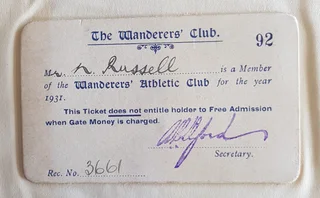 The Wanderers' Club.
92
Mr. N. Russell is a Member
of the Wanderers' Athletic Club for the year
1931.
This Ticket does not entitle holder to Free Admission
when Gate Money is charged.
Secretary.
Rec. No. 3661